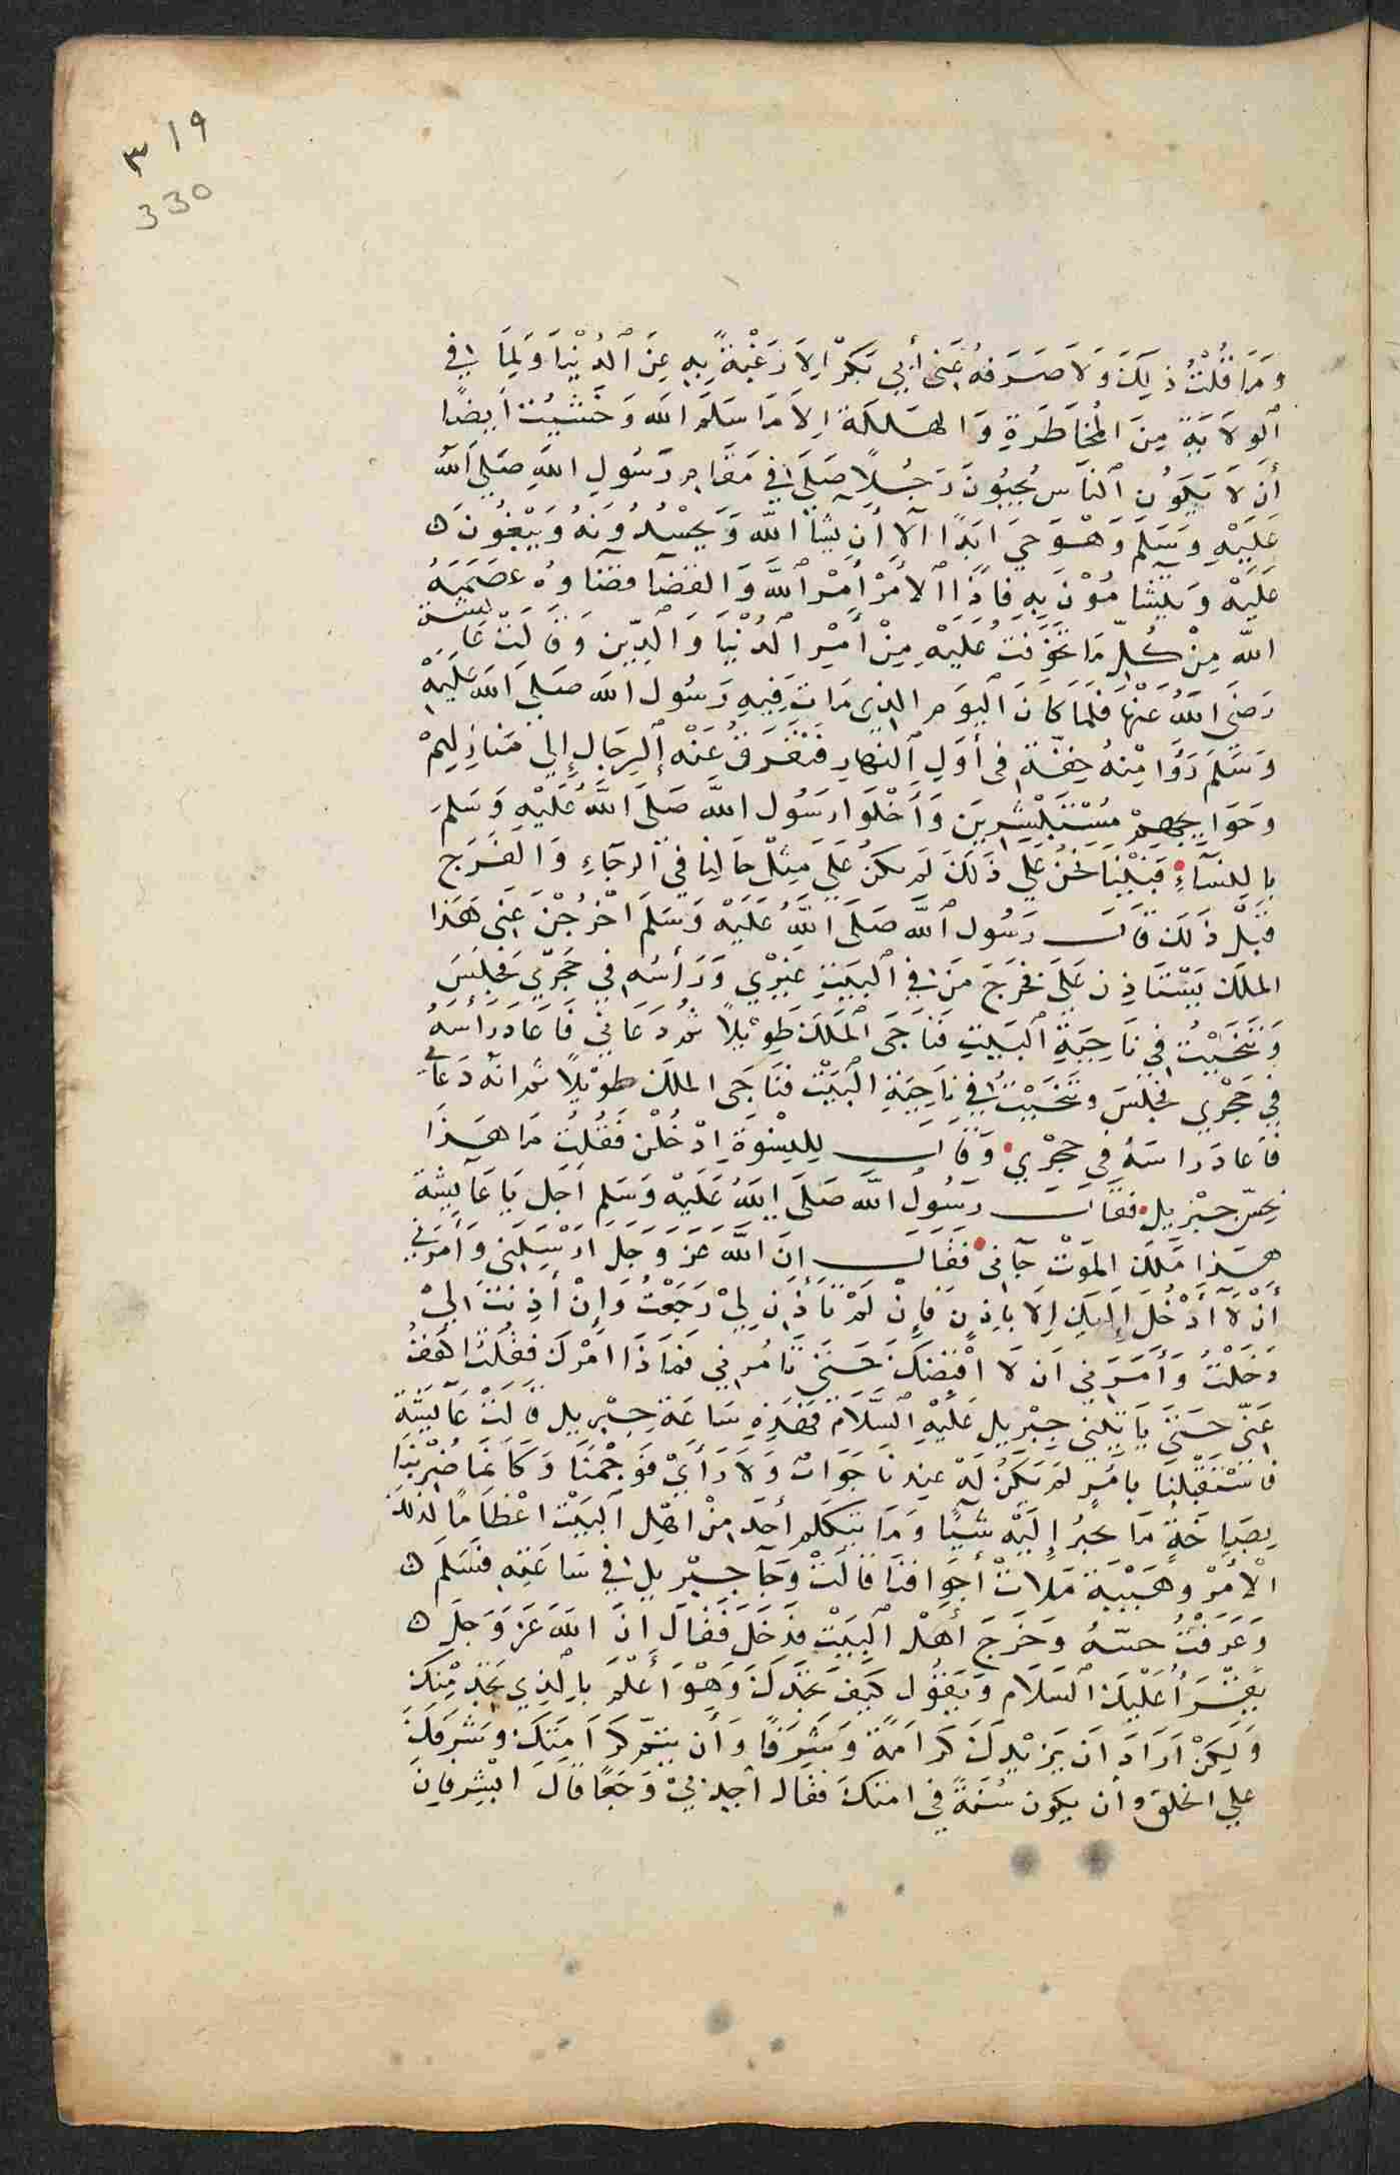 ٣١٩
330
وَمَا قُلْتُ ذَلِكَ وَلَا صَرَفتُهُ عَنْ أَبِي بَكْرٍ اِلَا رَغْبَةً بِهِ عَنَ الدُنْيَا وَلِمَا فِي
الوِلَايَةِ مِنَ المُخَاطَرَةِ وَالهَلَكَةِ اِلَا مَا سَلَمَ اللَه وَخَشِيْتُ أَيضًا
أَن لَا يَكُون النَاسُ يُحِبُونَ رَجُلًا صَلَى فِي مَقَامِ رَسُولِ اللَهِ صَلَى اللَه
عَلَيْهِ وَسَلَمَ وَهْوَ حَيٌ اَبَدًا اَلا أَن يَشَا اللَه وَيَحْسُدُونَهُ وَيَبْغُونَ
عَلَيْهِ وَيَتَشَامُوْنَ بِهِ فَاِذَا الأَمْرُ أَمْرُ اللَه وَالقَضَا قضَاوُه عَصَمَهُ
اللَه مِنْ كُلِ مَا تَخَوَفتُ عَلَيْهِ مِنْ أَمْرِ الدُنْيَا وَالدِيْنِ وَقَالَتْ عَايشة
رَضَى اللَهُ عَنْهَا فَلَمَا كَانَ اليَوم الذِي مَاتَ فِيهِ رَسُول اللَه صَلَى اللَه عَلَيْهِ
وَسَلَمَ رَوَا مِنْهُ خِفَةً فِى أَوَلِ النَهَارِ فَتَفَرَقَ عَنْهُ الرِجَالِ إِلي مَنَازِلِهِمْ
وَحَوَايجِهِمْ مُسْتَبْشِرِيَن وَأَخْلَوَا رَسُول اللَه صَلَى اللَهُ عَلَيْهِ وَسَلمَ
بِالِنسَآءِ فَبَيْنَا نَحْنُ عَلي ذَلكَ لَم نكنْ عَلَي مِثْلِ حَالِنا فِي الرجَاءِ وَالفَرَجِ
قبْلَ ذَلِكَ قَالَ رَسُول اللَه صَلَى اللَهُ عَلَيْهِ وَسَلَمَ اخْرُجْنَ عَنِى هَذا
المَلَك يَسْتَاذِن عَلَيَ فخَرَجَ مَن فِي البَيْتِ غيْرِي وَرَأسُه فِي حَجْرِيْ فَجَلسَ
وَتَنَحَيْتُ فِي نَاحِيَةِ البَيتِ فَنَاجَى المَلَكَ طَوِيْلًا ثُمَ دَعَانِي فَاعَادَ رَأسَهُ
فِي حَجْرِي فجَلسَ وتنَحَيْتُ فِي نَاحِيَةِ البَيْت فنَاجَى الملكَ طويْلًا ثم انه دَعَاني
فَاعَادَ رَاسَهُ في حَجْرِي وَقَالَ لِلنِسْوَةِ اِدْخُلْنَ فَقُلتُ مَا هَذَا
بِحِسّ جِبْرِيل فقَالَ رَسُولُ اللَه صَلَى اللَهُ عَلَيْهِ وَسَلَم اَجَل يَا عَآيشَة
هَذا مَلَكُ المَوْتِ جَآنى فَقَالَ اِنَ اللَه عَزَ وَجَلَ اَرْسَلَنِى وَأَمَرَنِي
أَنْ لَا أَدْخُلَ اِلَيكِ اِلَا بِاِذِنٍ فَإِنْ لَمْ تَأذَن لِيْ رَجَعْتُ وَإِنْ أَذِنتَ لِيْ
دَخَلْتُ وَأَمَرَنِي اَن لَا اَقْبِضَكَ حَتَى تَامُرنِي فمَاذَا اَمْرُكَ فقُلتُ اكفُف
عَنِّي حَتَى يَاتِيَنِي جِبْرِيل عَلَيْهِ السَّلَامُ فهَذِهِ سَاعَةِ جِبْرِيل قَالَتْ عَآيشَة
فاسْتَقبَلنَا بِامْرٍ لَم يَكُنْ لَهُ عِندنَا جَوَابٌ وَلَا رَأيٌ فَوَجِمْنَا وَكَانَمَا ضُرِبْنَا
بِصَاخَةٍ مَا نحِيرُ إِلَيْهِ شَيًا وَمَا يتَكَلم أَحَد مِنْ اهْل البَيْت اعْظامًا لذلك
الأمْرِ وهَيْبَة مَلاتْ أَجوَافنَا قَالَتْ وَجَآ جِبْرِيل فِي سَاعَتِهِ فسَلَم
وَعَرَفْتُ حسّهُ وَخَرَجَ أَهْلُ البَيْت فدَخَلَ فَقَالَ انَ اللَهَ عَزَ وَجَل
يَقْرَأُ عَلَيْكَ السَلَام وَيَقُول كَيفَ تجدُكَ وَهْوَ أَعْلَم بِالَذِي تجد مِنْكَ
وَلَكِنْ اَرَادَ اَن يَزِيْدكَ كَرَامَةً وَشَرَفًا وَأَن يتمّ كَرَامَتكَ وشرَفكَ
علي الخلق وأن يكون سُنَةً فِي امتكَ فقال اَجِدنيْ وَجِعًا قالَ ابشِر فان